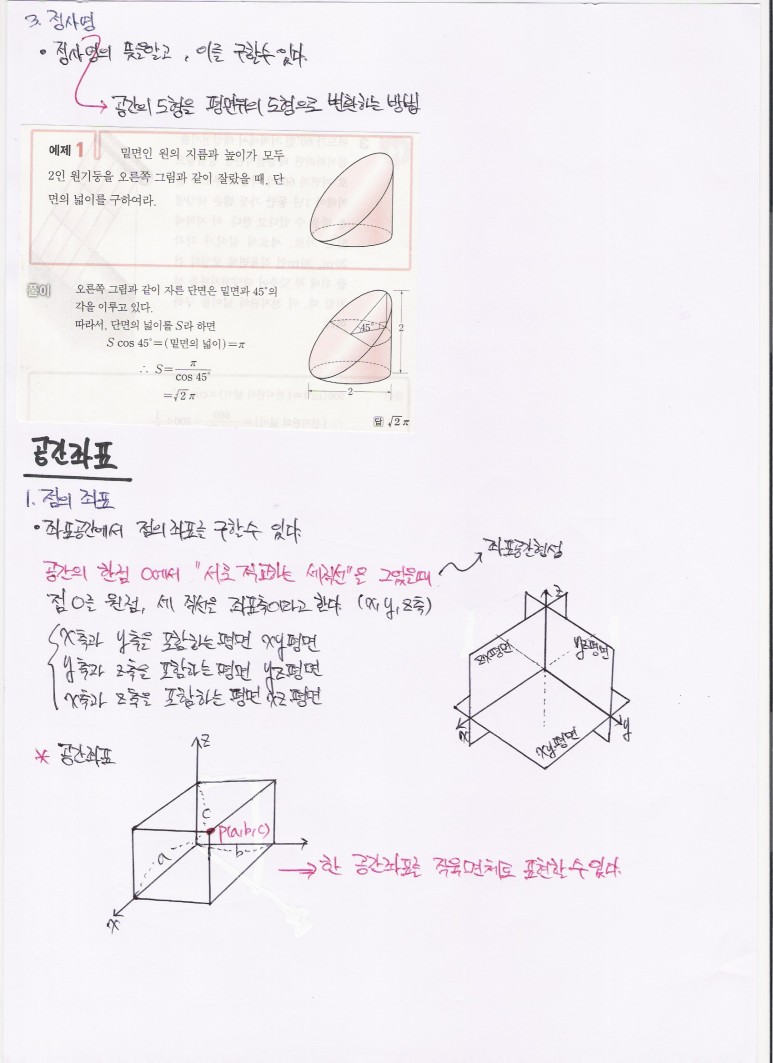 3. 정사영
• 정사영의 뜻을알고, 이를 구할수 있다.
공간의 도형을 평면위의 도형으로 변환하는 방법
예제 1 밑면인 원의 지름과 높이가 모두
2인 원기둥을 오른쪽 그림과 같이 잘랐을 때, 단
면의 넓이를 구하여라.
풀이 오른쪽 그림과 같이 자른 단면은 밑면과 45°의
각을 이루고 있다.
따라서, 단면의 넓이를 S라 하면
S cos 45°=(밑면의 넓이)=π
∴ S=π/cos 45°
=√2π
45°
2
2
답 √2π
공간좌표
1. 점의 좌표
• 좌표공간에서 점의 좌표를 구할수 있다.
공간의 한점 O에서 "서로 직교하는 세직선"을 그었을때
좌표공간형성
점 O를 원점, 세 직선을 좌표축이라고 한다 (x, y, z축)
x축과 y축을 포함하는 평면 xy평면
y축과 z축을 포함하는 평면 yz평면
x축과 z축을 포함하는 평면 xz평면
z
zx평면
yz평면
x
xy평면
y
* 공간좌표
z
c
P(a,b,c)
a
b
x
한 공간좌표를 직육면체로 표현할수있다.